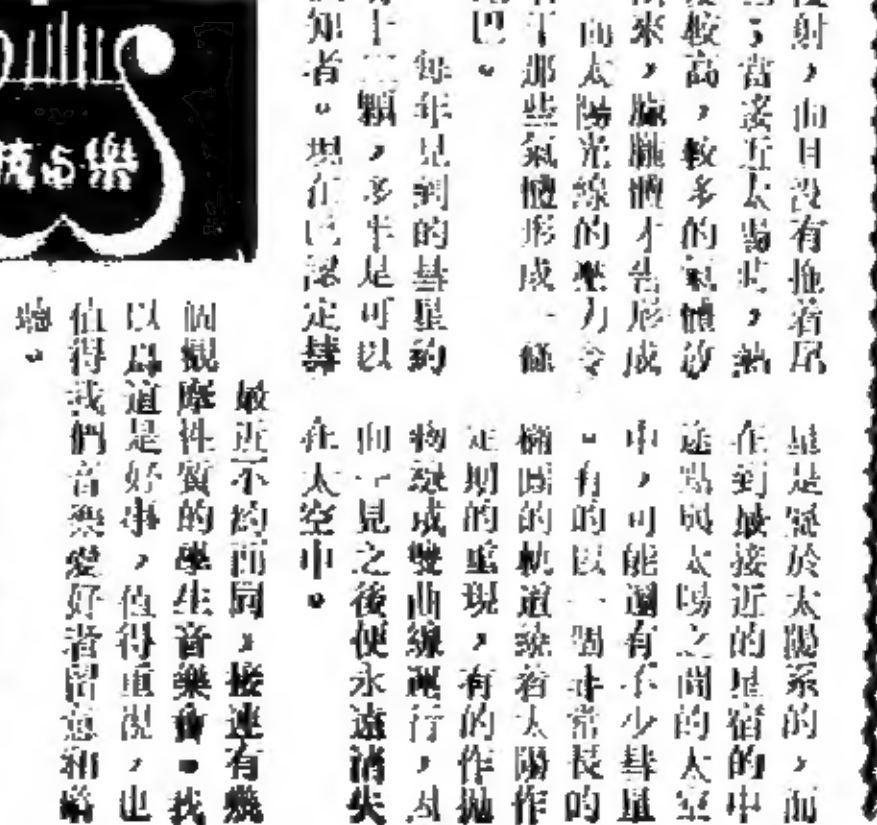 射，而且沒有拖着尾
當接近太陽時，熱
較高，較多的氣體放
來，腦體才告形成
而太陽光線的壓力令
那些氣體形成一條
巴。
每年見到的彗星約
十二顆，多半是可以
知者。現在已認定彗
星是屬於太陽系的，而
在到最接近的星宿的中
途點與太陽之間的太空
中，可能還有不少彗星
。有的以一個非常長的
橢圓的軌道繞着太陽作
定期的重現，有的作拋
物線或雙曲線運行，因
而一見之後便永遠消失
在太空中。
技与樂
最近不約而同，接連有幾
個觀摩性質的學生音樂會。我
以為這是好事，值得重視，也
值得我們音樂愛好者留意和
聽。